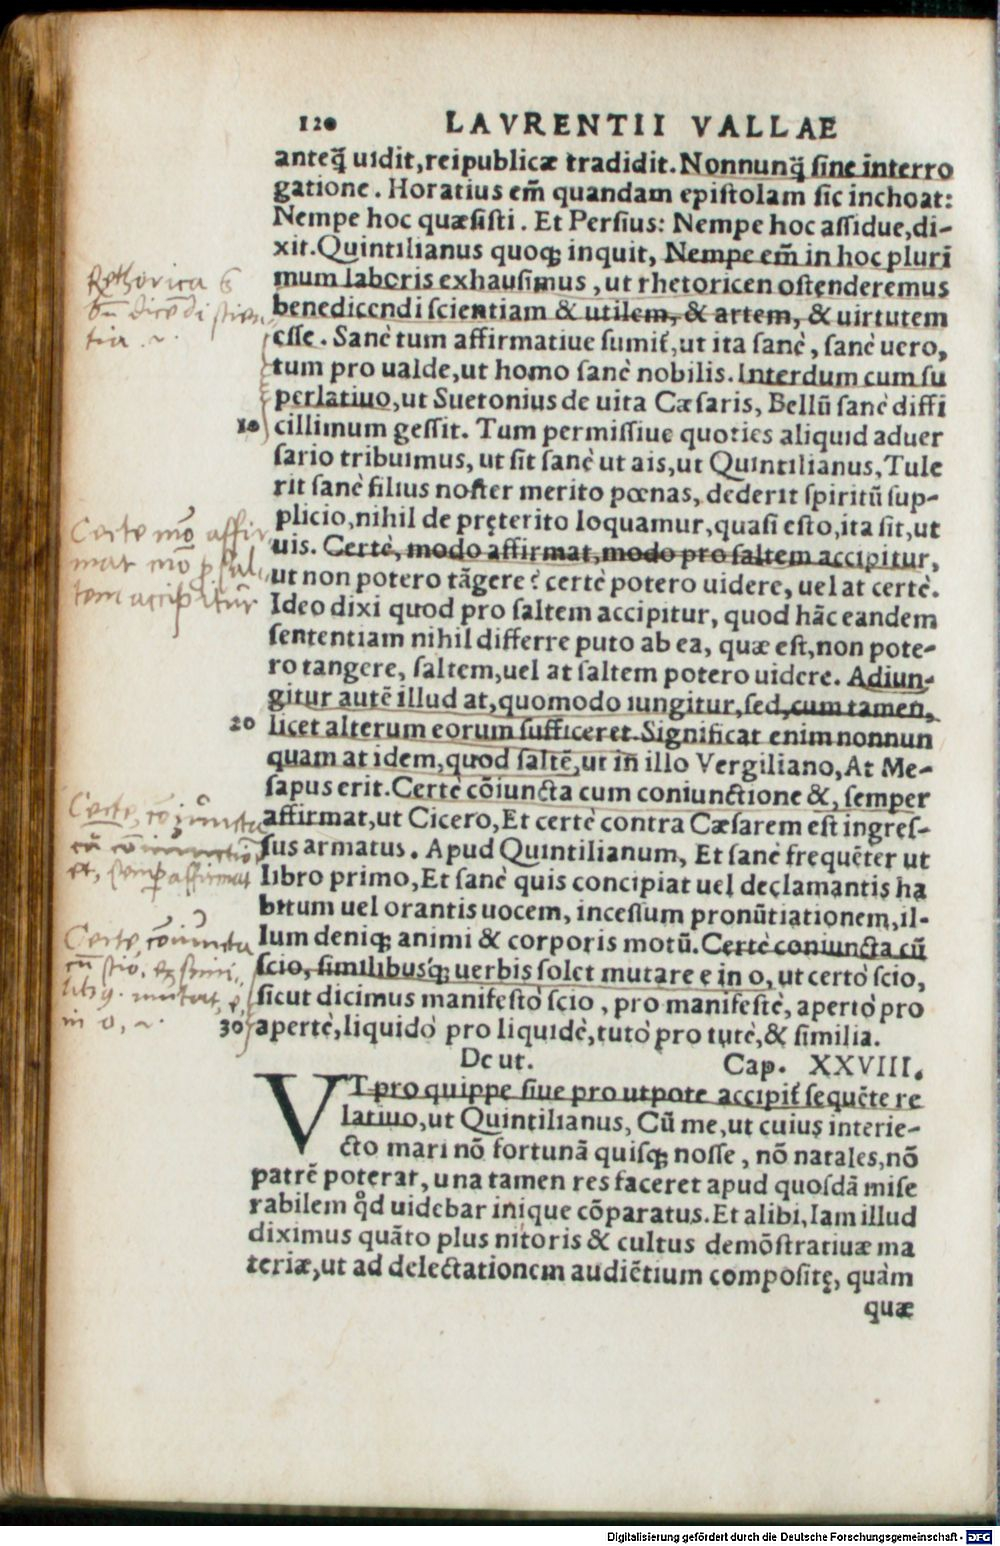 120 LAVRENTII VALLAE
anteq̃ uidit, reipublicæ tradidit. Nonnunq̃ ſine interro
gatione. Horatius em̃ quandam epiſtolam ſic inchoat:
Nempe hoc quæſiſti. Et Perſius: Nempe hoc aſſidue, di-
xit. Quintilianus quoqꝫ inquit, Nempe em̃ in hoc plurĩ
mum laboris exhauſimus, ut rhetoricen oſtenderemus
benedicendi ſcientiam & utilem, & artem, & uirtutem
eſſe. Sanè tum affirmatiue ſumit̃, ut ita ſanè, ſanè uero,
tum pro ualde, ut homo ſanè nobilis. Interdum cum ſu
perlatiuo, ut Suetonius de uita Cæſaris, Bellũ ſanè diffi
10 cillimum geſſit. Tum permiſſiue quoties aliquid aduer
ſario tribuimus, ut ſit ſanè ut ais, ut Quintilianus, Tule
rit ſanè filius noſter merito pœnas, dederit ſpiritũ ſup-
plicio, nihil de pręterito loquamur, quaſi eſto, ita ſit, ut
uis. Certè, modo affirmat, modo pro ſaltem accipitur,
ut non potero tãgere? certè potero uidere, uel at certè.
Ideo dixi quod pro ſaltem accipitur, quod hãc eandem
ſententiam nihil differre puto ab ea, quæ eſt, non pote-
ro tangere, ſaltem, uel at ſaltem potero uidere. Adiun-
gitur autẽ illud at, quomodo iungitur, ſed, cum tamen,
20 licet alterum eorum ſufficeret. Significat enim nonnun
quam at idem, quod ſaltẽ, ut in illo Vergiliano, At Me-
ſapus erit. Certè cõiuncta cum coniunctione &, ſemper
affirmat, ut Cicero, Et certè contra Cæſarem eſt ingreſ-
ſus armatus. Apud Quintilianum, Et ſanè frequẽter ut
libro primo, Et ſanè quis concipiat uel declamantis ha
bitum uel orantis uocem, inceſſum pronũtiationem, il-
lum deniqꝫ animi & corporis motũ. Certè coniuncta cũ
ſcio, ſimilibusqꝫ uerbis ſolet mutare e in o, ut certò ſcio,
ſicut dicimus manifeſtò ſcio, pro manifeſtè, apertò pro
30 apertè, liquidò pro liquidè, tutò pro tutè, & ſimilia.
De ut. Cap. XXVIII.
VT pro quippe ſiue pro utpote accipit̃ ſequẽte re
latiuo, ut Quintilianus, Cũ me, ut cuius interie-
cto mari nõ fortunã quiſqꝫ noſſe, nõ natales, nõ
patrẽ poterat, una tamen res faceret apud quoſdã miſe
rabilem qd̃ uidebar inique cõparatus. Et alibi, Iam illud
diximus quãto plus nitoris & cultus demõſtratiuæ ma
teriæ, ut ad delectationem audiẽtium compoſitę, quàm
quæ
Rethorica
bñ dicẽdi
tia.
Certe mõ affir
mat mõ p ſal
tem accipitur
Certe, cõiuncta
cũ
et, ſemp affirmat
Certe cõiuncta
cũ ſcio,
mutat, e,
in o,
Digitalisierung gefördert durch die Deutsche Forschungsgemeinschaft - DFG